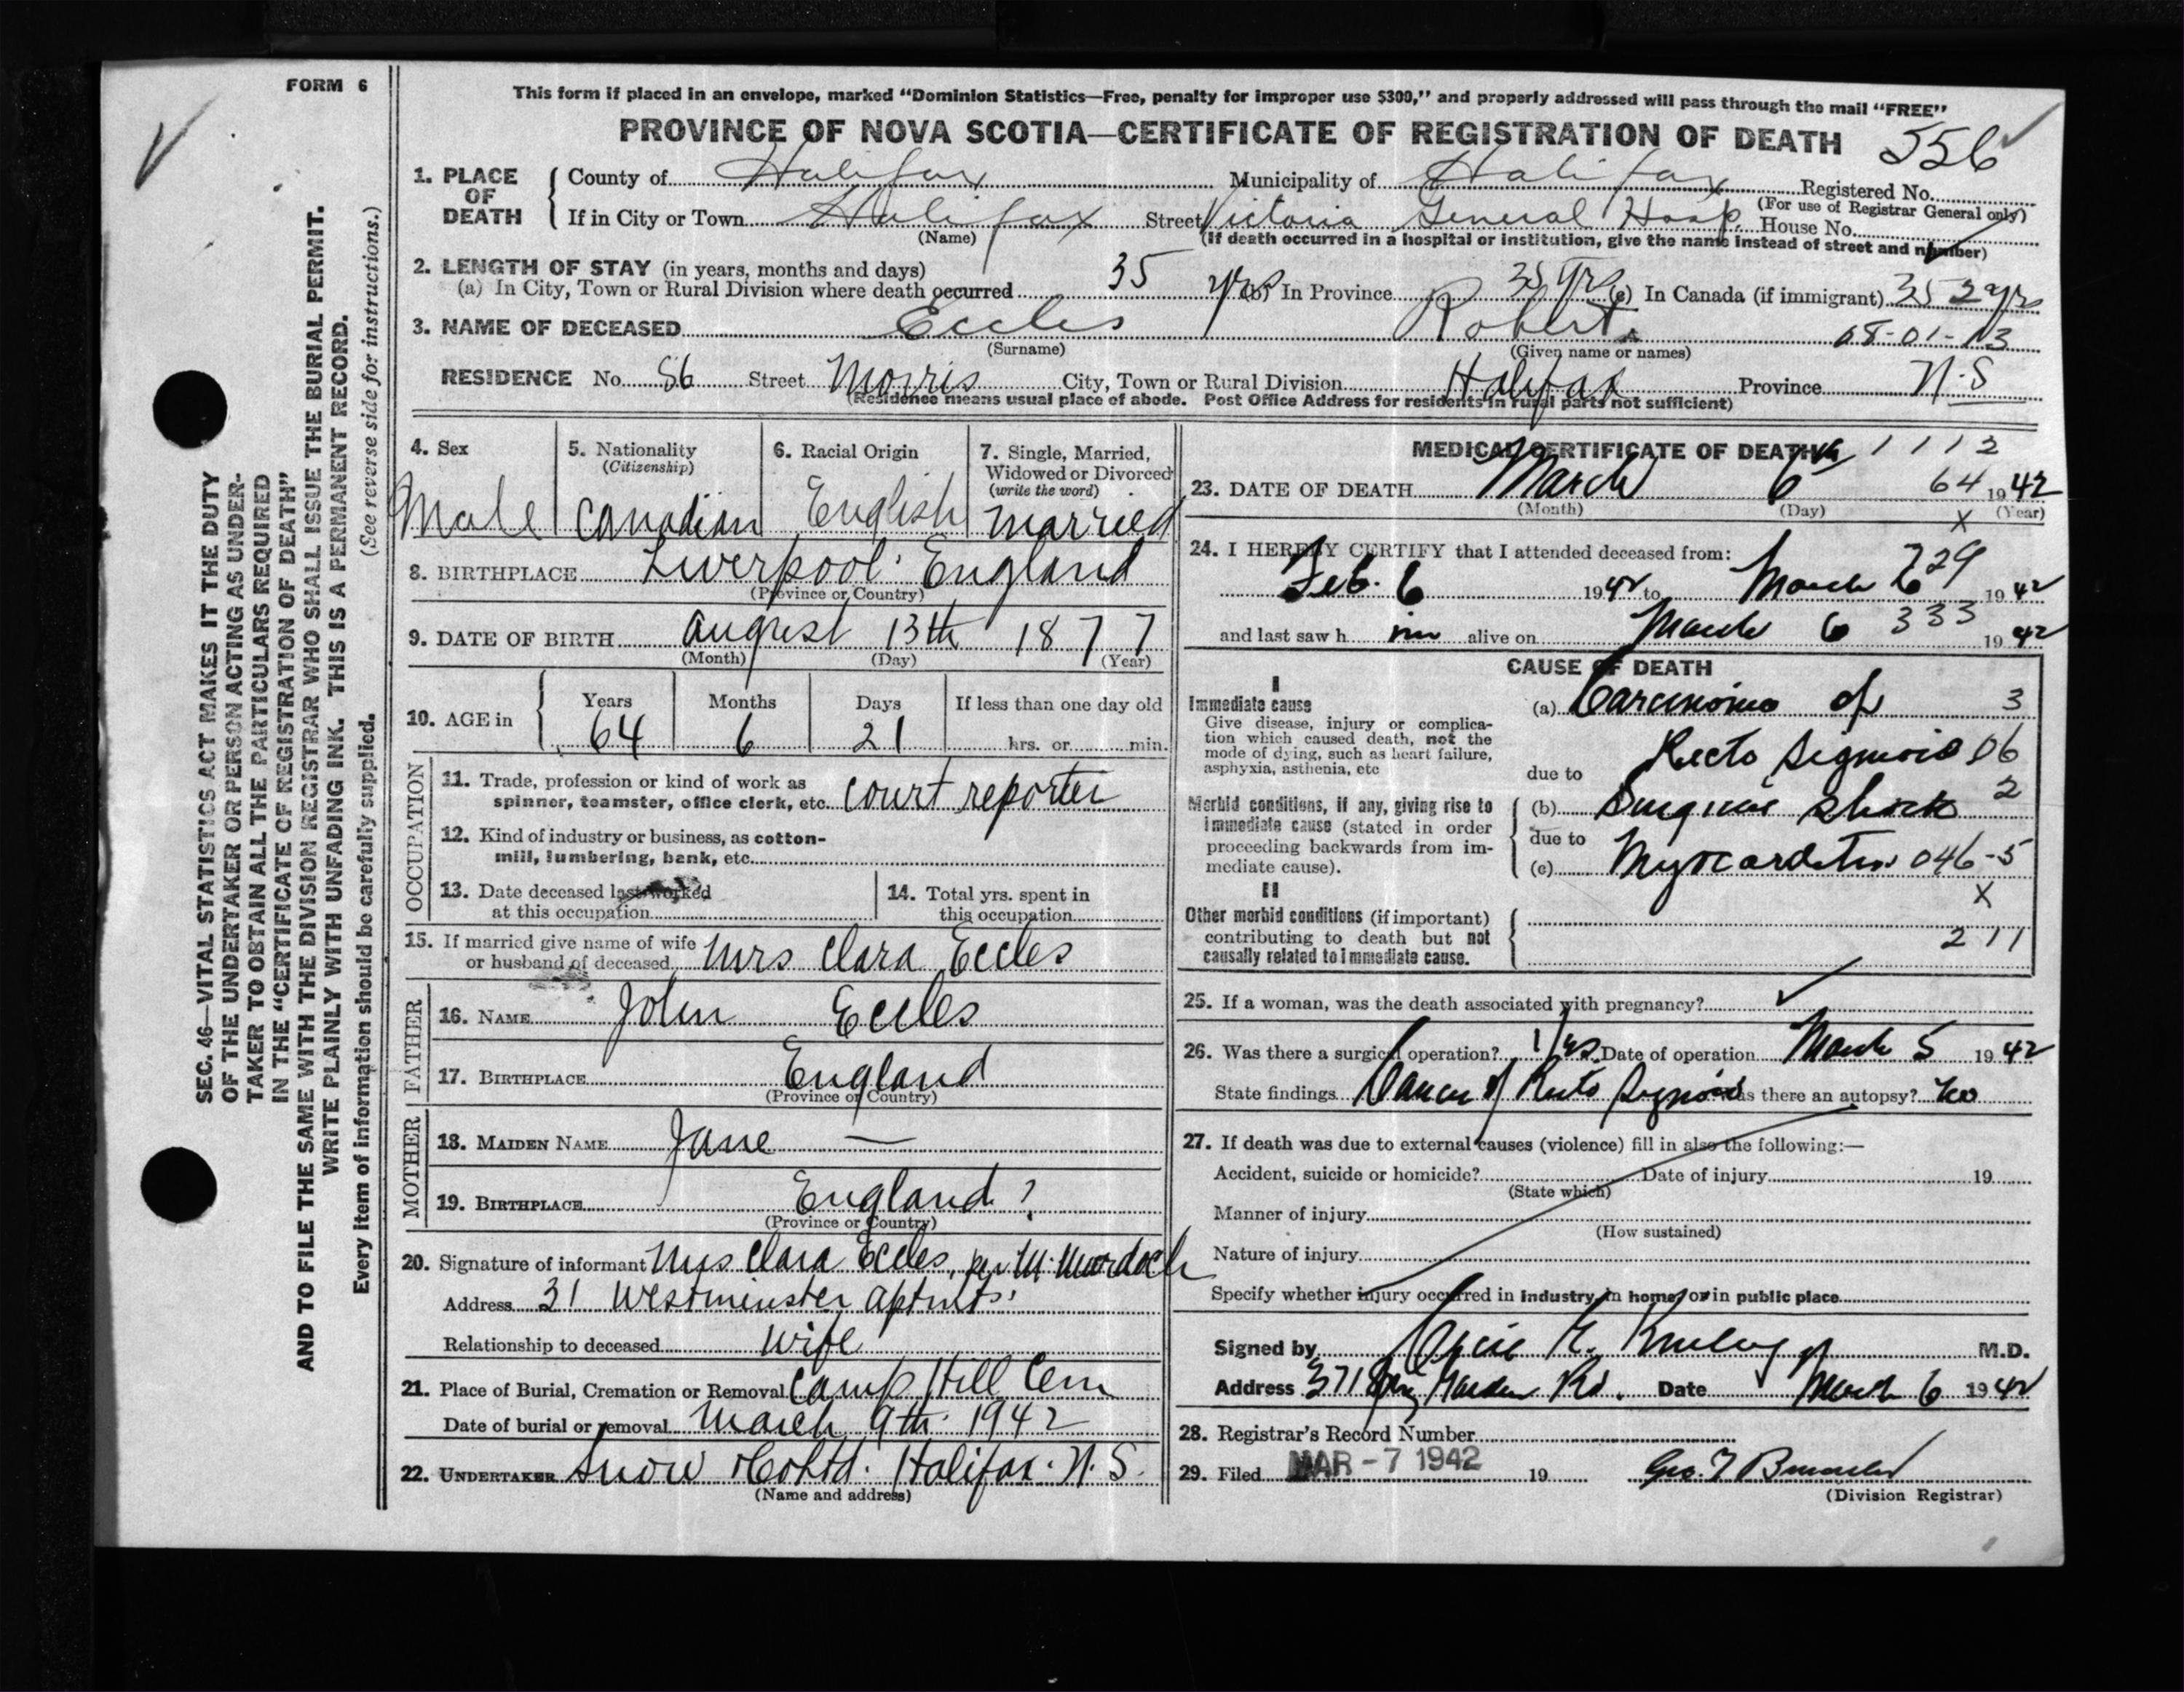 FORM 6
This form if placed in an envelope, marked "Dominion Statistics—Free, penalty for improper use $300," and properly addressed will pass through the mail "FREE"
PROVINCE OF NOVA SCOTIA—CERTIFICATE OF REGISTRATION OF DEATH 556
1. PLACE OF DEATH
County of Halifax Municipality of Halifax Registered No.
(For use of Registrar General only)
If in City or Town Halifax Street Victoria General Hosp. House No.
(Name) (If death occurred in a hospital or institution, give the name instead of street and number)
2. LENGTH OF STAY (in years, months and days)
(a) In City, Town or Rural Division where death occurred 35 yrs (b) In Province 35 yrs (c) In Canada (if immigrant) 35 yrs
3. NAME OF DECEASED Eccles Robert
(Surname) (Given name or names)
RESIDENCE No. 86 Street Morris City, Town or Rural Division Halifax Province N.S
(Residence means usual place of abode. Post Office Address for residents in rural parts not sufficient)
4. Sex 5. Nationality (Citizenship) 6. Racial Origin 7. Single, Married, Widowed or Divorced (write the word)
Male Canadian English Married
8. BIRTHPLACE Liverpool England
(Province or Country)
9. DATE OF BIRTH August 13th 1877
(Month) (Day) (Year)
10. AGE in Years Months Days If less than one day old
64 6 21 hrs. or min.
OCCUPATION
11. Trade, profession or kind of work as spinner, teamster, office clerk, etc. Court reporter
12. Kind of industry or business, as cotton-
mill, lumbering, bank, etc.
13. Date deceased last worked at this occupation
14. Total yrs. spent in this occupation
15. If married give name of wife or husband of deceased Mrs Clara Eccles
FATHER
16. NAME John Eccles
17. BIRTHPLACE England
(Province or Country)
MOTHER
18. MAIDEN NAME Jane —
19. BIRTHPLACE England ?
(Province or Country)
20. Signature of informant Mrs Clara Eccles, per M. Murdoch
Address 31 Westminster aptmts.
Relationship to deceased wife
21. Place of Burial, Cremation or Removal Camp Hill Cem
Date of burial or removal March 9th 1942
22. UNDERTAKER Snow & Co Ltd. Halifax. N.S.
(Name and address)
MEDICAL CERTIFICATE OF DEATH 1112
23. DATE OF DEATH March 6 64 1942
(Month) (Day) x (Year)
24. I HEREBY CERTIFY that I attended deceased from: 729
Feb. 6 1942 to March 6 1942
and last saw him alive on March 6 333 1942
CAUSE OF DEATH
I
Immediate cause
Give disease, injury or complica-
tion which caused death, not the
mode of dying, such as heart failure,
asphyxia, asthenia, etc
(a) Carcinoma of 3
Recto Sigmoid 06
due to
Morbid conditions, if any, giving rise to
immediate cause (stated in order
proceeding backwards from im-
mediate cause).
(b) Surgical shock 2
due to
(c) Myocarditis 046-5
x
II
Other morbid conditions (if important)
contributing to death but not
causally related to immediate cause.
211
25. If a woman, was the death associated with pregnancy?
26. Was there a surgical operation? Yes. Date of operation March 5 1942
State findings Cancer of Recto Sigmoid Was there an autopsy? No
27. If death was due to external causes (violence) fill in also the following:—
Accident, suicide or homicide? Date of injury 19
(State which)
Manner of injury
(How sustained)
Nature of injury
Specify whether injury occurred in industry, in home, or in public place
Signed by M.D.
Address 371 Spring Garden Rd. Date March 6 1942
28. Registrar's Record Number
29. Filed MAR - 7 1942 19
(Division Registrar)
SEC. 46—VITAL STATISTICS ACT MAKES IT THE DUTY
OF THE UNDERTAKER OR PERSON ACTING AS UNDER-
TAKER TO OBTAIN ALL THE PARTICULARS REQUIRED
IN THE "CERTIFICATE OF REGISTRATION OF DEATH"
AND TO FILE THE SAME WITH THE DIVISION REGISTRAR WHO SHALL ISSUE THE BURIAL PERMIT.
WRITE PLAINLY WITH UNFADING INK. THIS IS A PERMANENT RECORD.
Every item of information should be carefully supplied. (See reverse side for instructions.)